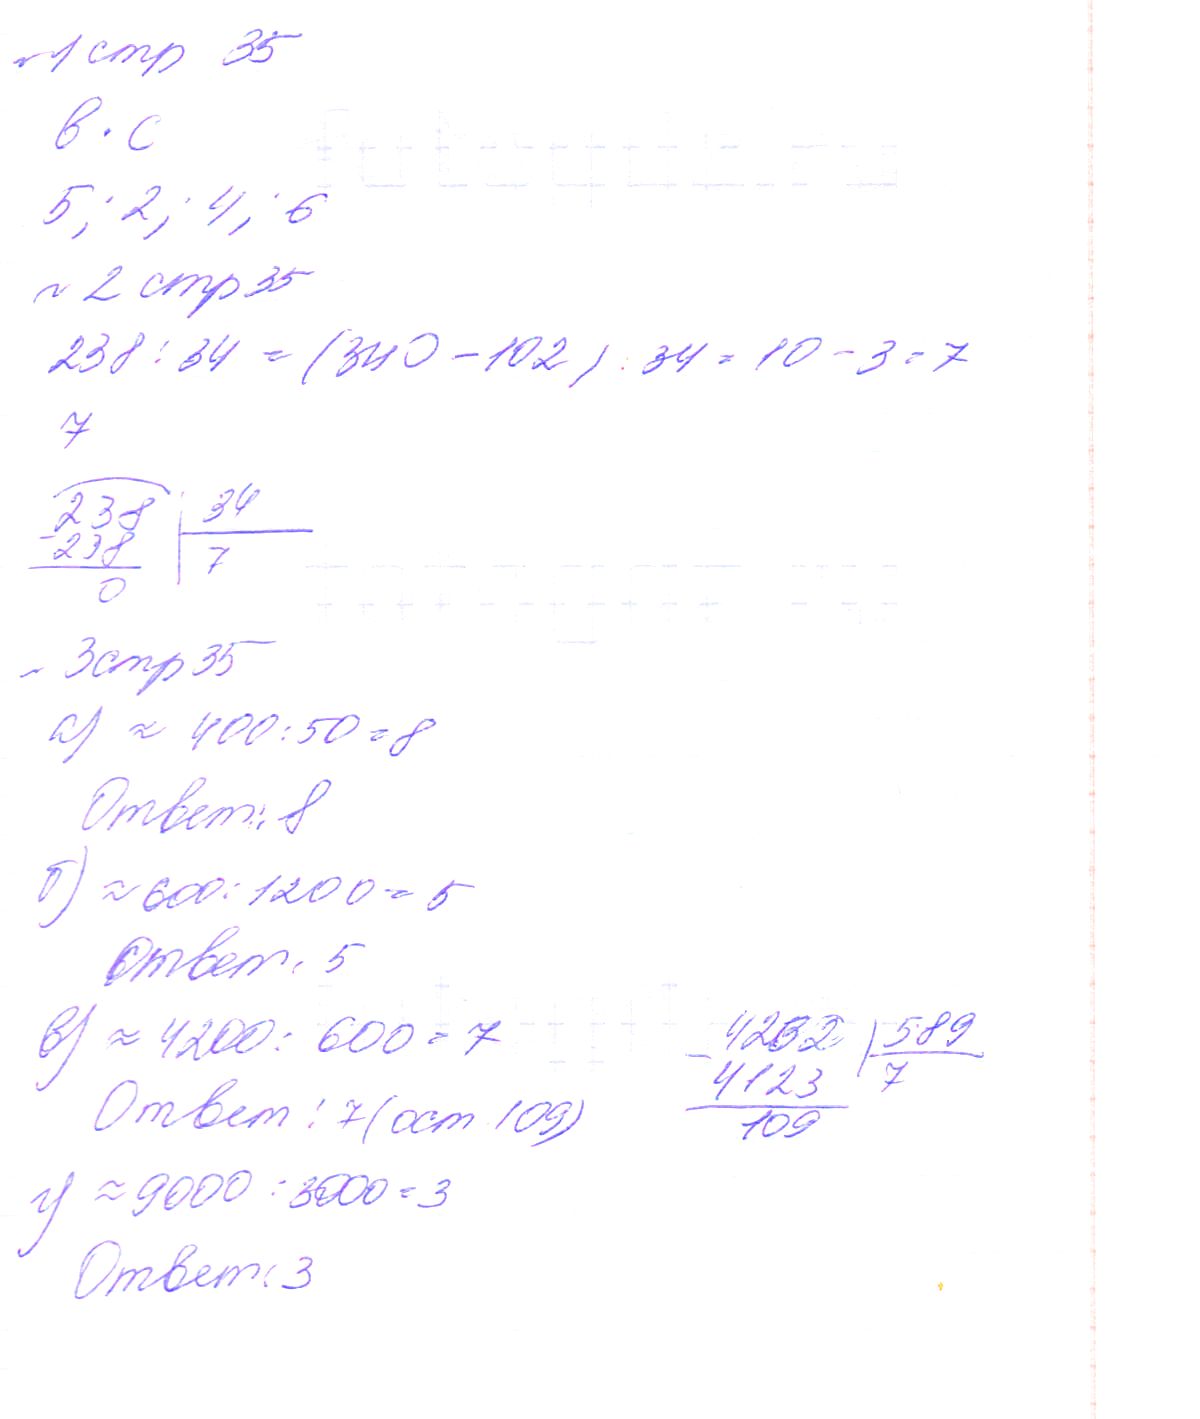 №1 стр 35
в · с
5; 2; 4; 6
№2 стр 35
238 : 34 = (340 - 102) : 34 = 10 - 3 = 7
7
238 | 34
-238 | 7
0
№3 стр 35
а) ≈ 400 : 50 = 8
Ответ: 8
б) ≈ 600 : 1200 = 5
Ответ: 5
в) ≈ 4200 : 600 = 7
Ответ: 7 (ост 109)
4232 | 589
- 4123 | 7
109
г) ≈ 9000 : 3000 = 3
Ответ: 3